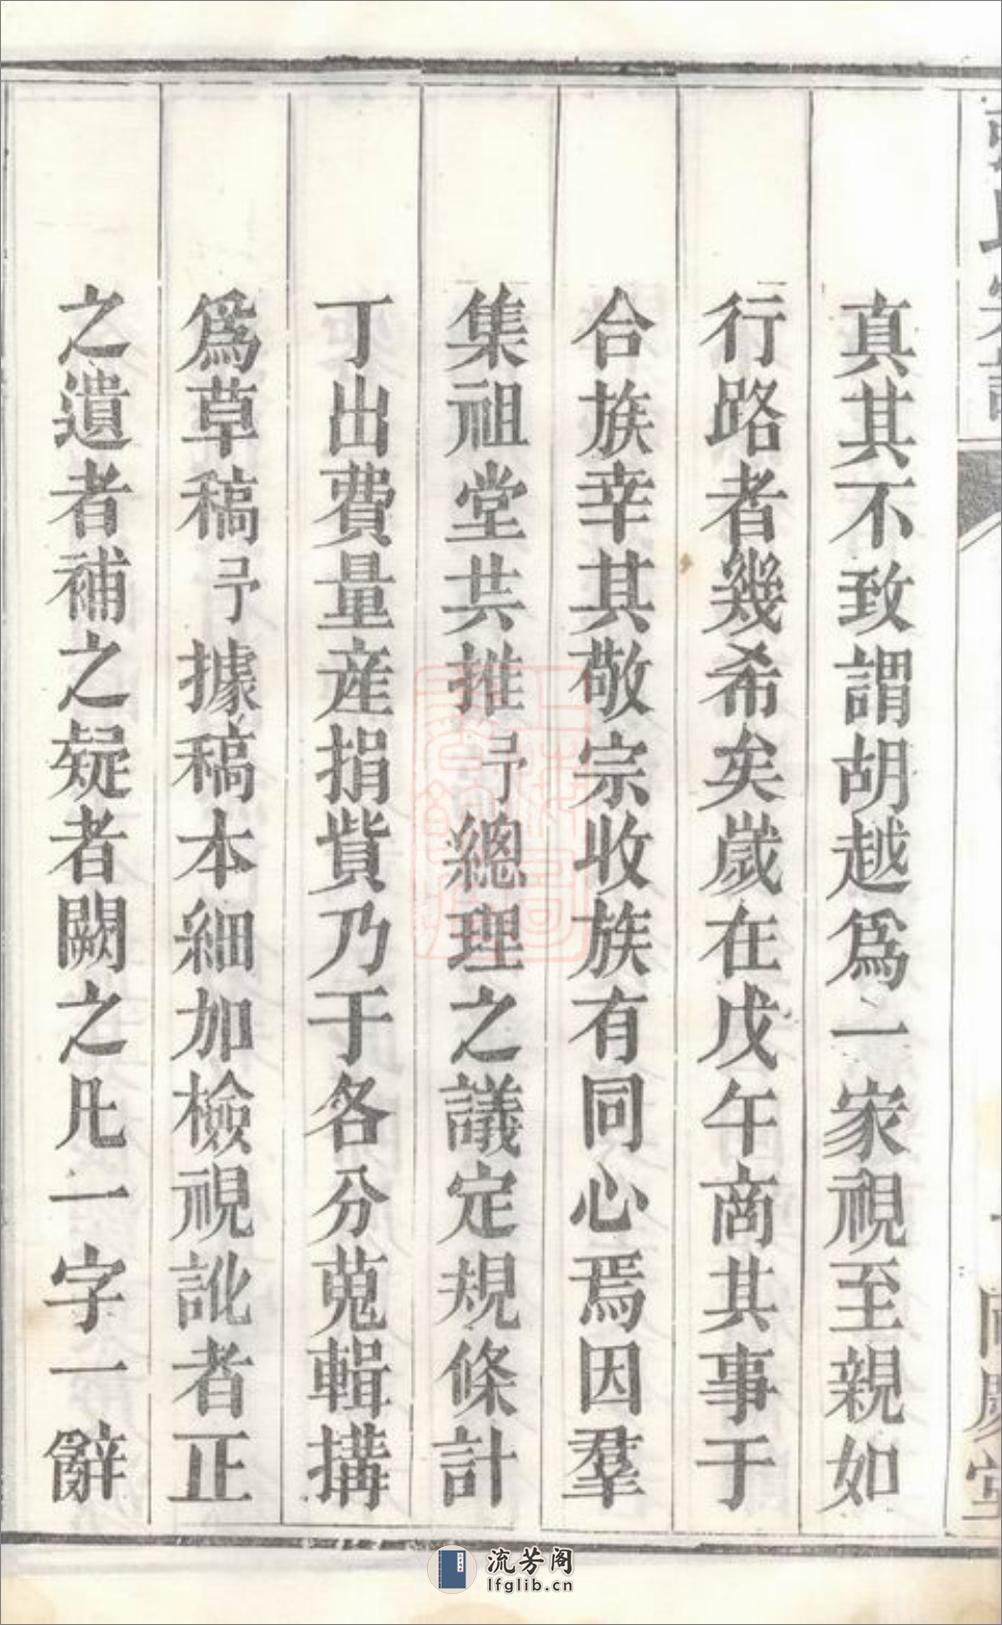 真其不致謂胡越爲一家視至親如
行路者幾希矣歲在戊午商其事于
合族幸其敬宗收族有同心焉因羣
集祖堂共推予總理之議定規條計
丁出費量産捐貲乃于各分蒐輯搆
爲草稿予據稿本細加檢視訛者正
之遺者補之疑者闕之凡一字一辭
流芳阁
lfglib.cn